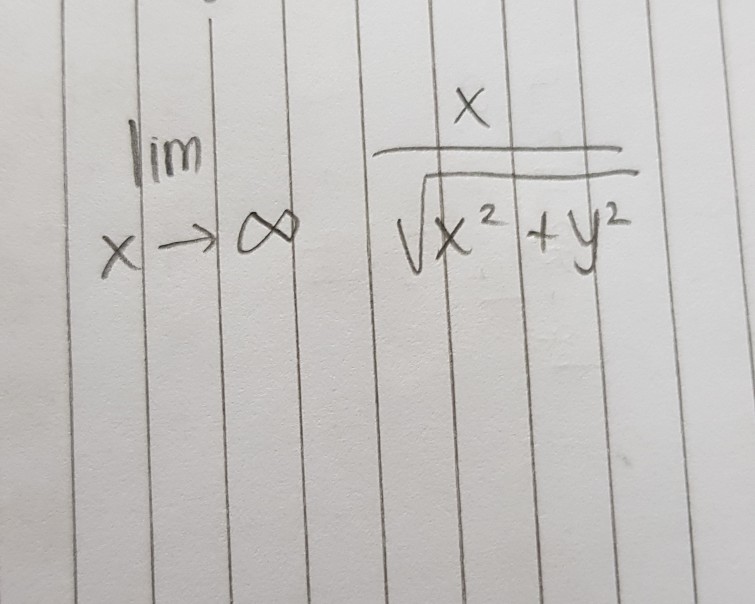 lim x→∞ x/√(x²+y²)